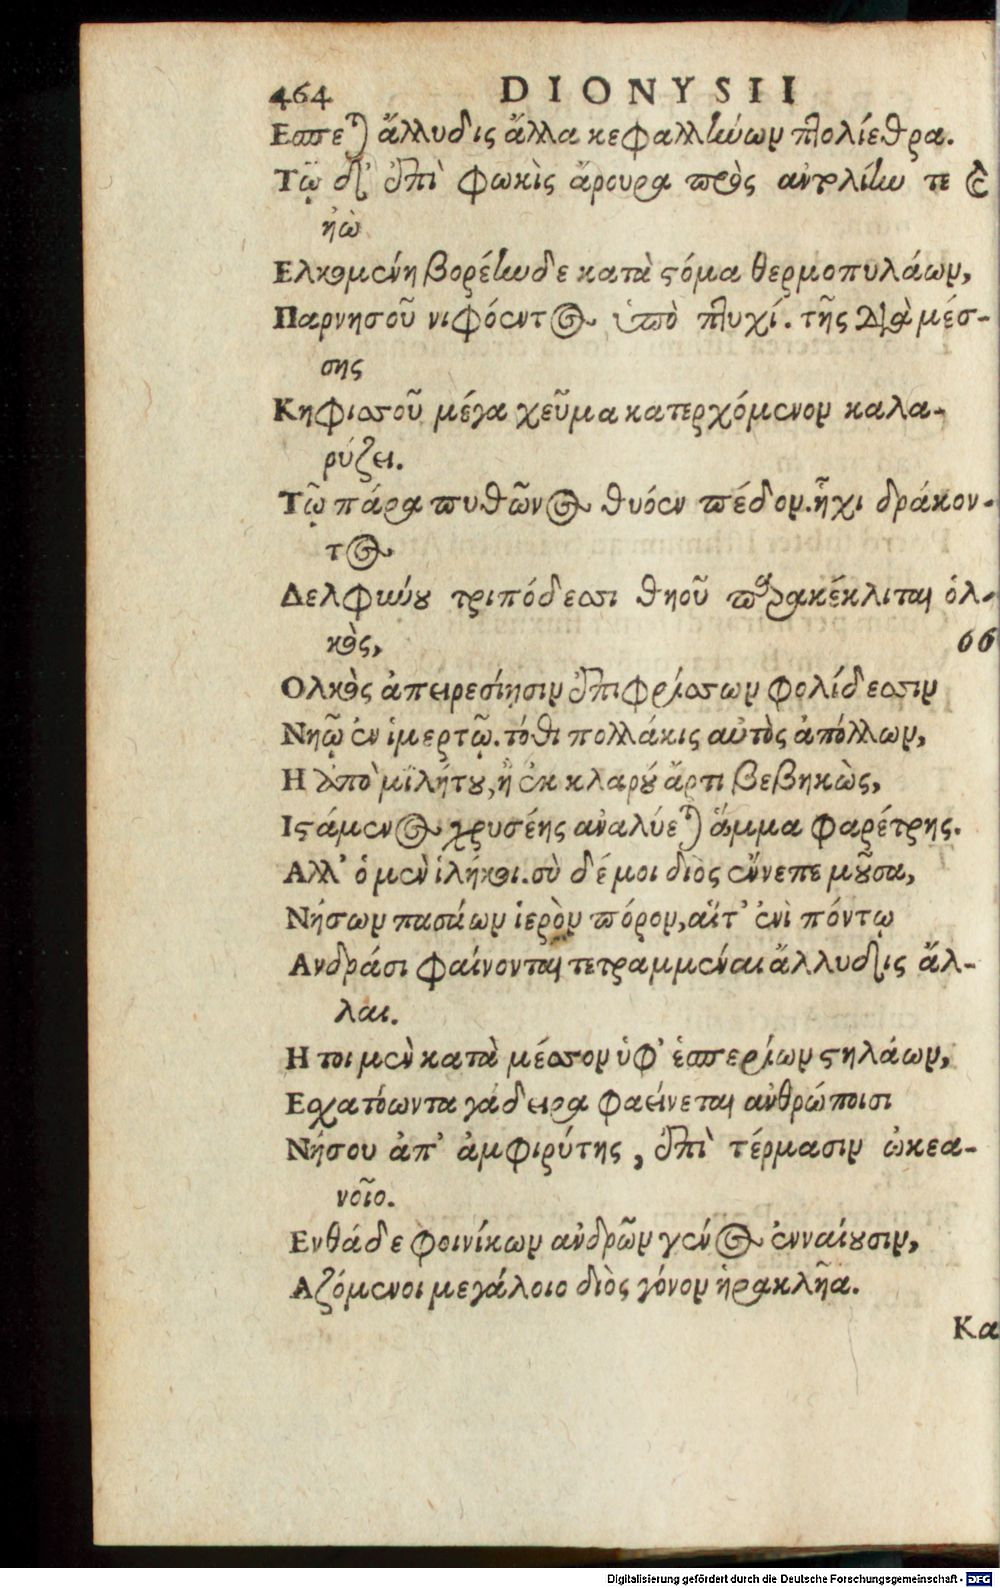 464 DIONYSII
Εσπεται ἄλλυδις ἄλλα κεφαλλήνων πτολίεθρα.
Τῷ δ' ἐπὶ φωκὶς ἄρουρα πρὸς αντολίην τε καὶ
ἠὼ
Ελκομένη βορέηνδε κατὰ στόμα θερμοπυλάων,
Παρνησοῦ νιφόεντος ὑπὸ πτυχί. τῆς διὰ μέσ-
σης
Κηφισσοῦ μέγα χεῦμα κατερχόμενον καλα-
ρύζει.
Τῷ πάρα πυθῶνος θυόεν πέδον. ἧχι δράκον-
τος
Δελφιύου τριπόδεσσι θηοῦ παρακέκλιται ὁλ-
κὸς, 66
Ολκὸς ἀπειρεσίῃσιν ἐπιφρίσσων φολίδεσσιν
Νηῷ ἐν ἱμερτῷ. τόθι πολλάκις αὐτὸς ἀπόλλων,
Η ἀπὸ μϊλήτου, ἢ ἐκ κλαρού ἄρτι βεβηκὼς,
Ιστάμενος χρυσέης αναλύεται ἅμμα φαρέτρης.
Αλλ' ὁ μεν ἱλήκοι. σὺ δέ μοι διὸς ἔννεπε μοῦσα,
Νήσων πασάων ἱερὸν πόρον, αἵτ' ἐνὶ πόντῳ
Ανδράσι φαίνονται τετραμμέναι ἄλλυδις ἄλ-
λαι.
Η τοι μεν κατὰ μέσσον ὑφ' ἑσπερίων στηλάων,
Εσχατόωντα γάδειρα φαείνεται ανθρώποισι
Νήσου ἀπ' ἀμφιρύτης, ἐπὶ τέρμασιν ὠκεα-
νοῖο.
Ενθάδε φοινίκων ανδρῶν γένος ἐνναίουσιν,
Αζόμενοι μεγάλοιο διὸς γόνον ἡρακλῆα.
Κα
Digitalisierung gefördert durch die Deutsche Forschungsgemeinschaft - DFG